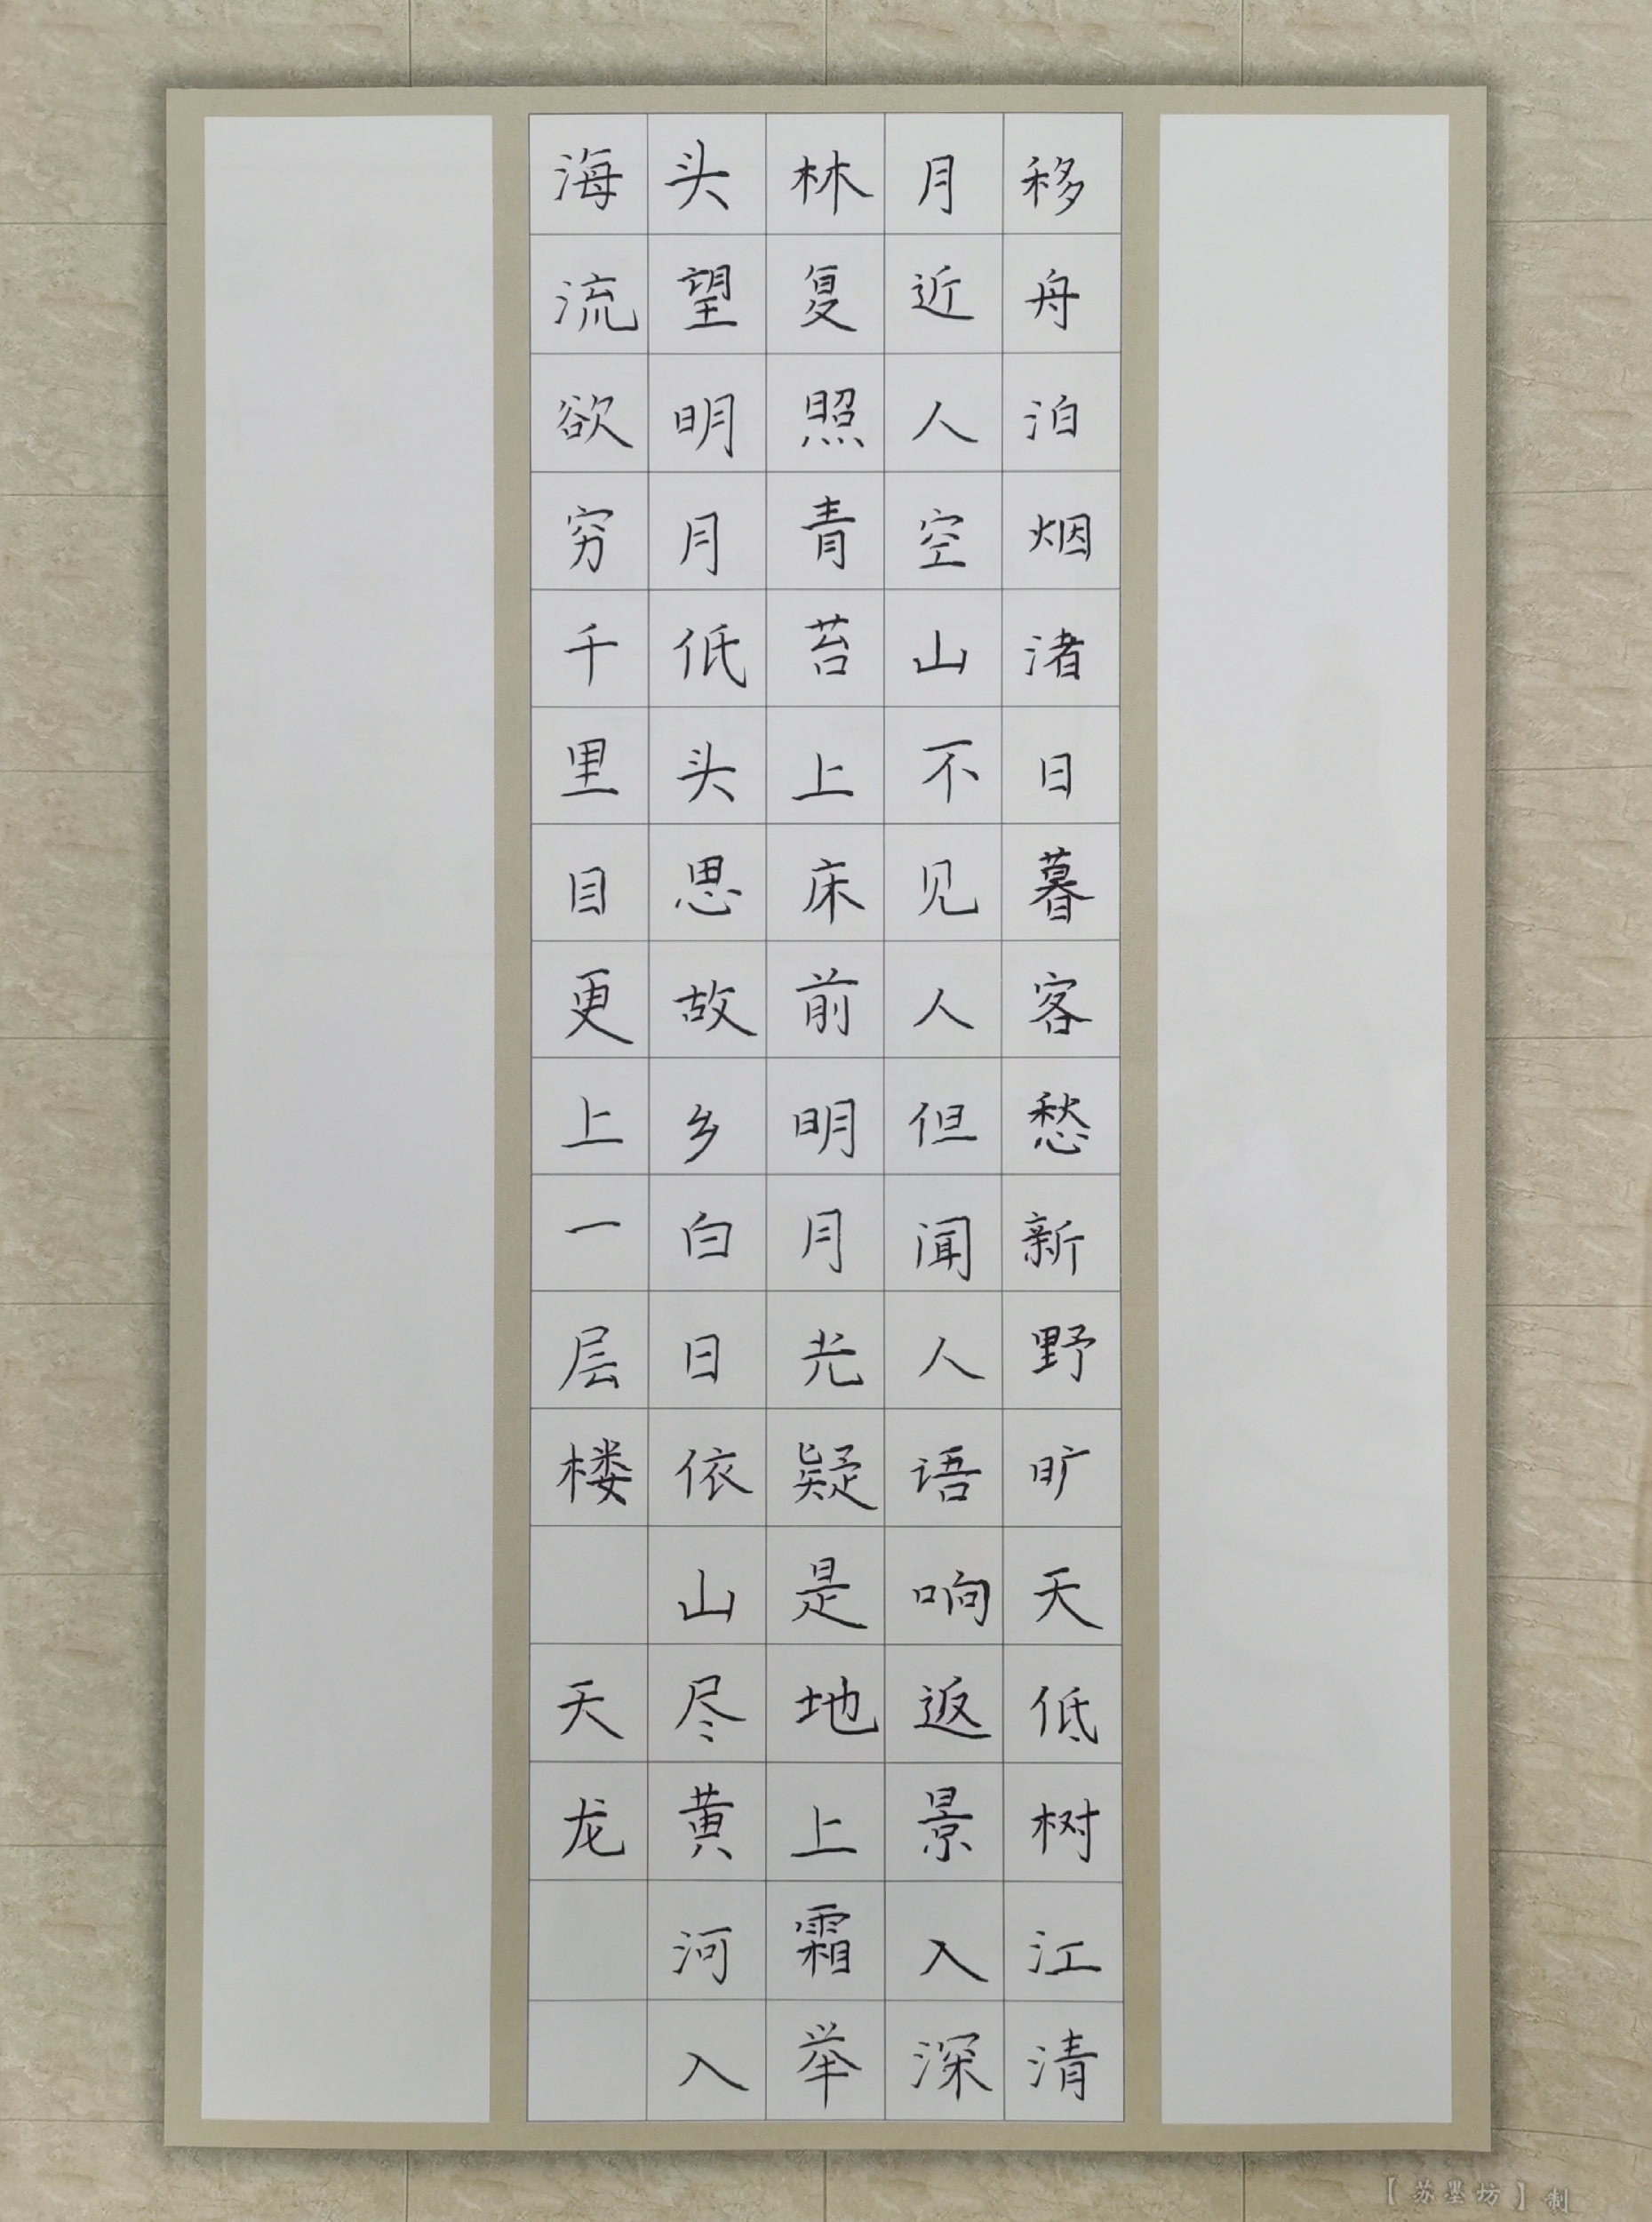 移舟泊烟渚日暮客愁新野旷天低树江清
月近人空山不见人但闻人语响返景入深
林复照青苔上床前明月光疑是地上霜举
头望明月低头思故乡白日依山尽黄河入
海流欲穷千里目更上一层楼 天龙
【苏墨坊】制